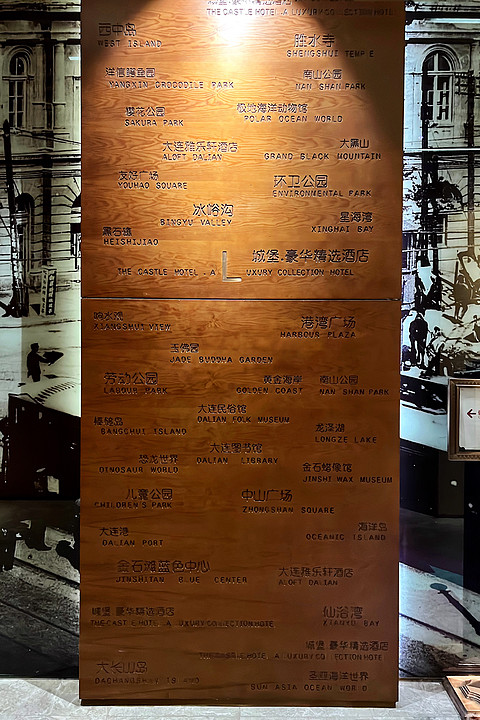 城堡.豪华精选酒店
THE CASTLE HOTEL . A LUXURY COLLECTION HOTEL
西中岛
WEST ISLAND
胜水寺
SHENGSHUI TEMPLE
洋信鳄鱼园
YANGXIN CROCODILE PARK
南山公园
NAN SHAN PARK
樱花公园
SAKURA PARK
极地海洋动物馆
POLAR OCEAN WORLD
大连雅乐轩酒店
ALOFT DALIAN
大黑山
GRAND BLACK MOUNTAIN
友好广场
YOUHAO SQUARE
环卫公园
ENVIRONMENTAL PARK
冰峪沟
BINGYU VALLEY
星海湾
XINGHAI BAY
黑石礁
HEISHIJIAO
城堡.豪华精选酒店
THE CASTLE HOTEL . A LUXURY COLLECTION HOTEL
响水观
XIANGSHUI VIEW
港湾广场
HARBOUR PLAZA
玉佛园
JADE BUDDHA GARDEN
劳动公园
LABOUR PARK
黄金海岸
GOLDEN COAST
南山公园
NAN SHAN PARK
大连民俗馆
DALIAN FOLK MUSEUM
棒棰岛
BANGCHUI ISLAND
龙泽湖
LONGZE LAKE
大连图书馆
DALIAN LIBRARY
恐龙世界
DINOSAUR WORLD
金石蜡像馆
JINSHI WAX MUSEUM
儿童公园
CHILDREN'S PARK
中山广场
ZHONGSHAN SQUARE
大连港
DALIAN PORT
海洋岛
OCEANIC ISLAND
金石滩蓝色中心
JINSHITAN BLUE CENTER
大连雅乐轩酒店
ALOFT DALIAN
城堡.豪华精选酒店
THE CASTLE HOTEL . A LUXURY COLLECTION HOTEL
仙浴湾
XIANYU BAY
城堡.豪华精选酒店
THE CASTLE HOTEL . A LUXURY COLLECTION HOTEL
大长山岛
DACHANGSHAN ISLAND
圣亚海洋世界
SUN ASIA OCEAN WORLD